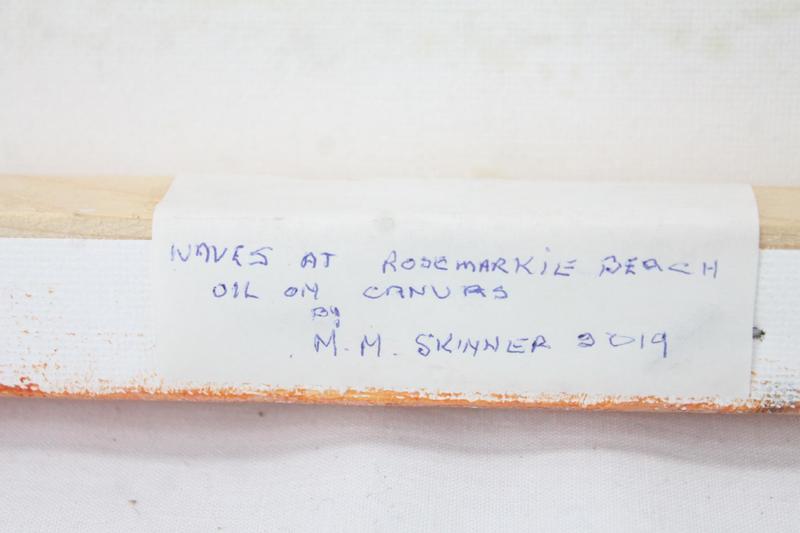 WAVES AT ROSEMARKIE BEACH
OIL ON CANVAS
BY
M.M. SKINNER 2019